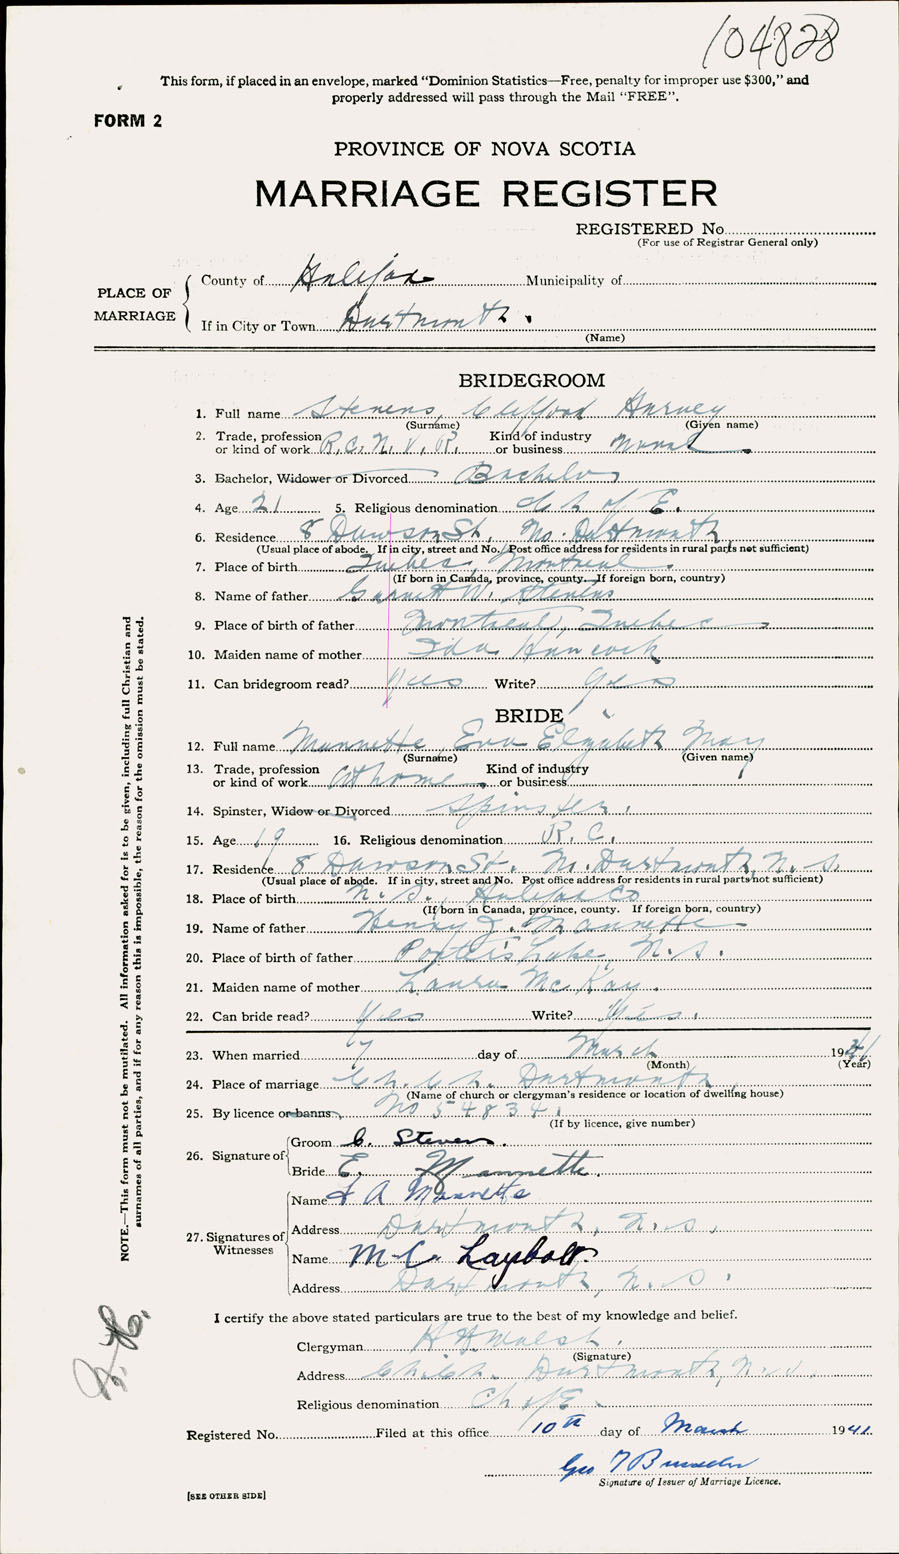 104828
This form, if placed in an envelope, marked "Dominion Statistics—Free, penalty for improper use $300," and
properly addressed will pass through the Mail "FREE".
FORM 2
PROVINCE OF NOVA SCOTIA
MARRIAGE REGISTER
REGISTERED No
(For use of Registrar General only)
PLACE OF MARRIAGE
County of Halifax Municipality of
If in City or Town Dartmouth.
(Name)
BRIDEGROOM
1. Full name Stevens, Clifford Harvey
(Surname) (Given name)
2. Trade, profession or kind of work R.C.N.V.R. Kind of industry or business Naval
3. Bachelor, Widower or Divorced Bachelor
4. Age 21 5. Religious denomination Ch of E.
6. Residence 8 Dawson St, No. Dartmouth
(Usual place of abode. If in city, street and No. Post office address for residents in rural parts not sufficient)
7. Place of birth Quebec, Montreal.
(If born in Canada, province, county. If foreign born, country)
8. Name of father Garnett W. Stevens
9. Place of birth of father Montreal, Quebec
10. Maiden name of mother Ida Hancock
11. Can bridegroom read? Yes Write? Yes
BRIDE
12. Full name Mannette, Eva Elizabeth May
(Surname) (Given name)
13. Trade, profession or kind of work At home Kind of industry or business
14. Spinster, Widow or Divorced Spinster.
15. Age 19 16. Religious denomination R.C.
17. Residence 8 Dawson St. No. Dartmouth, N.S.
(Usual place of abode. If in city, street and No. Post office address for residents in rural parts not sufficient)
18. Place of birth N.S., Halifax Co
(If born in Canada, province, county. If foreign born, country)
19. Name of father Henry J. Mannette
20. Place of birth of father Porter's Lake, N.S.
21. Maiden name of mother Laura McKay.
22. Can bride read? Yes Write? Yes.
23. When married 7 day of March 1941
(Month) (Year)
24. Place of marriage Ch. Ch. Dartmouth
(Name of church or clergyman's residence or location of dwelling house)
25. By licence or banns No 54834.
(If by licence, give number)
26. Signature of
Groom C. Stevens.
Bride E. Mannette.
27. Signatures of Witnesses
Name A Mannette
Address Dartmouth, N.S.
Name M C Laybolt
Address Dartmouth, N.S.
I certify the above stated particulars are true to the best of my knowledge and belief.
Clergyman H H Walsh.
(Signature)
Address Ch. Ch. Dartmouth, N.S.
Religious denomination Ch of E.
Registered No. Filed at this office 10th day of March 1941.
Geo T
Signature of Issuer of Marriage Licence.
[SEE OTHER SIDE]
NOTE.—This form must not be mutilated. All information asked for is to be given, including full Christian and
surnames of all parties, and if for any reason this is impossible, the reason for the omission must be stated.